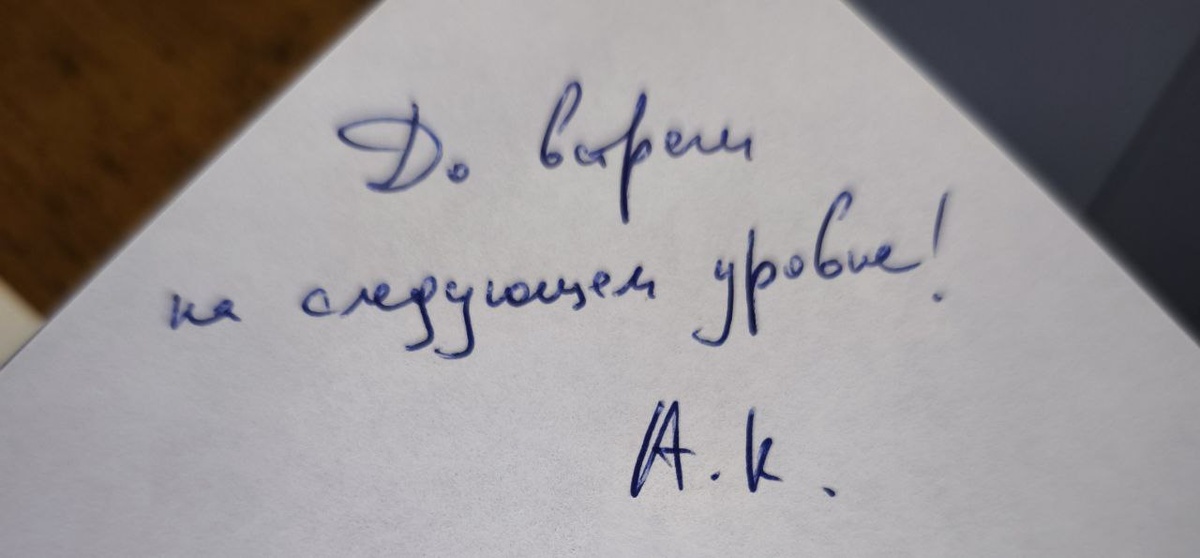 До встречи
на следующем уровне!
А.К.